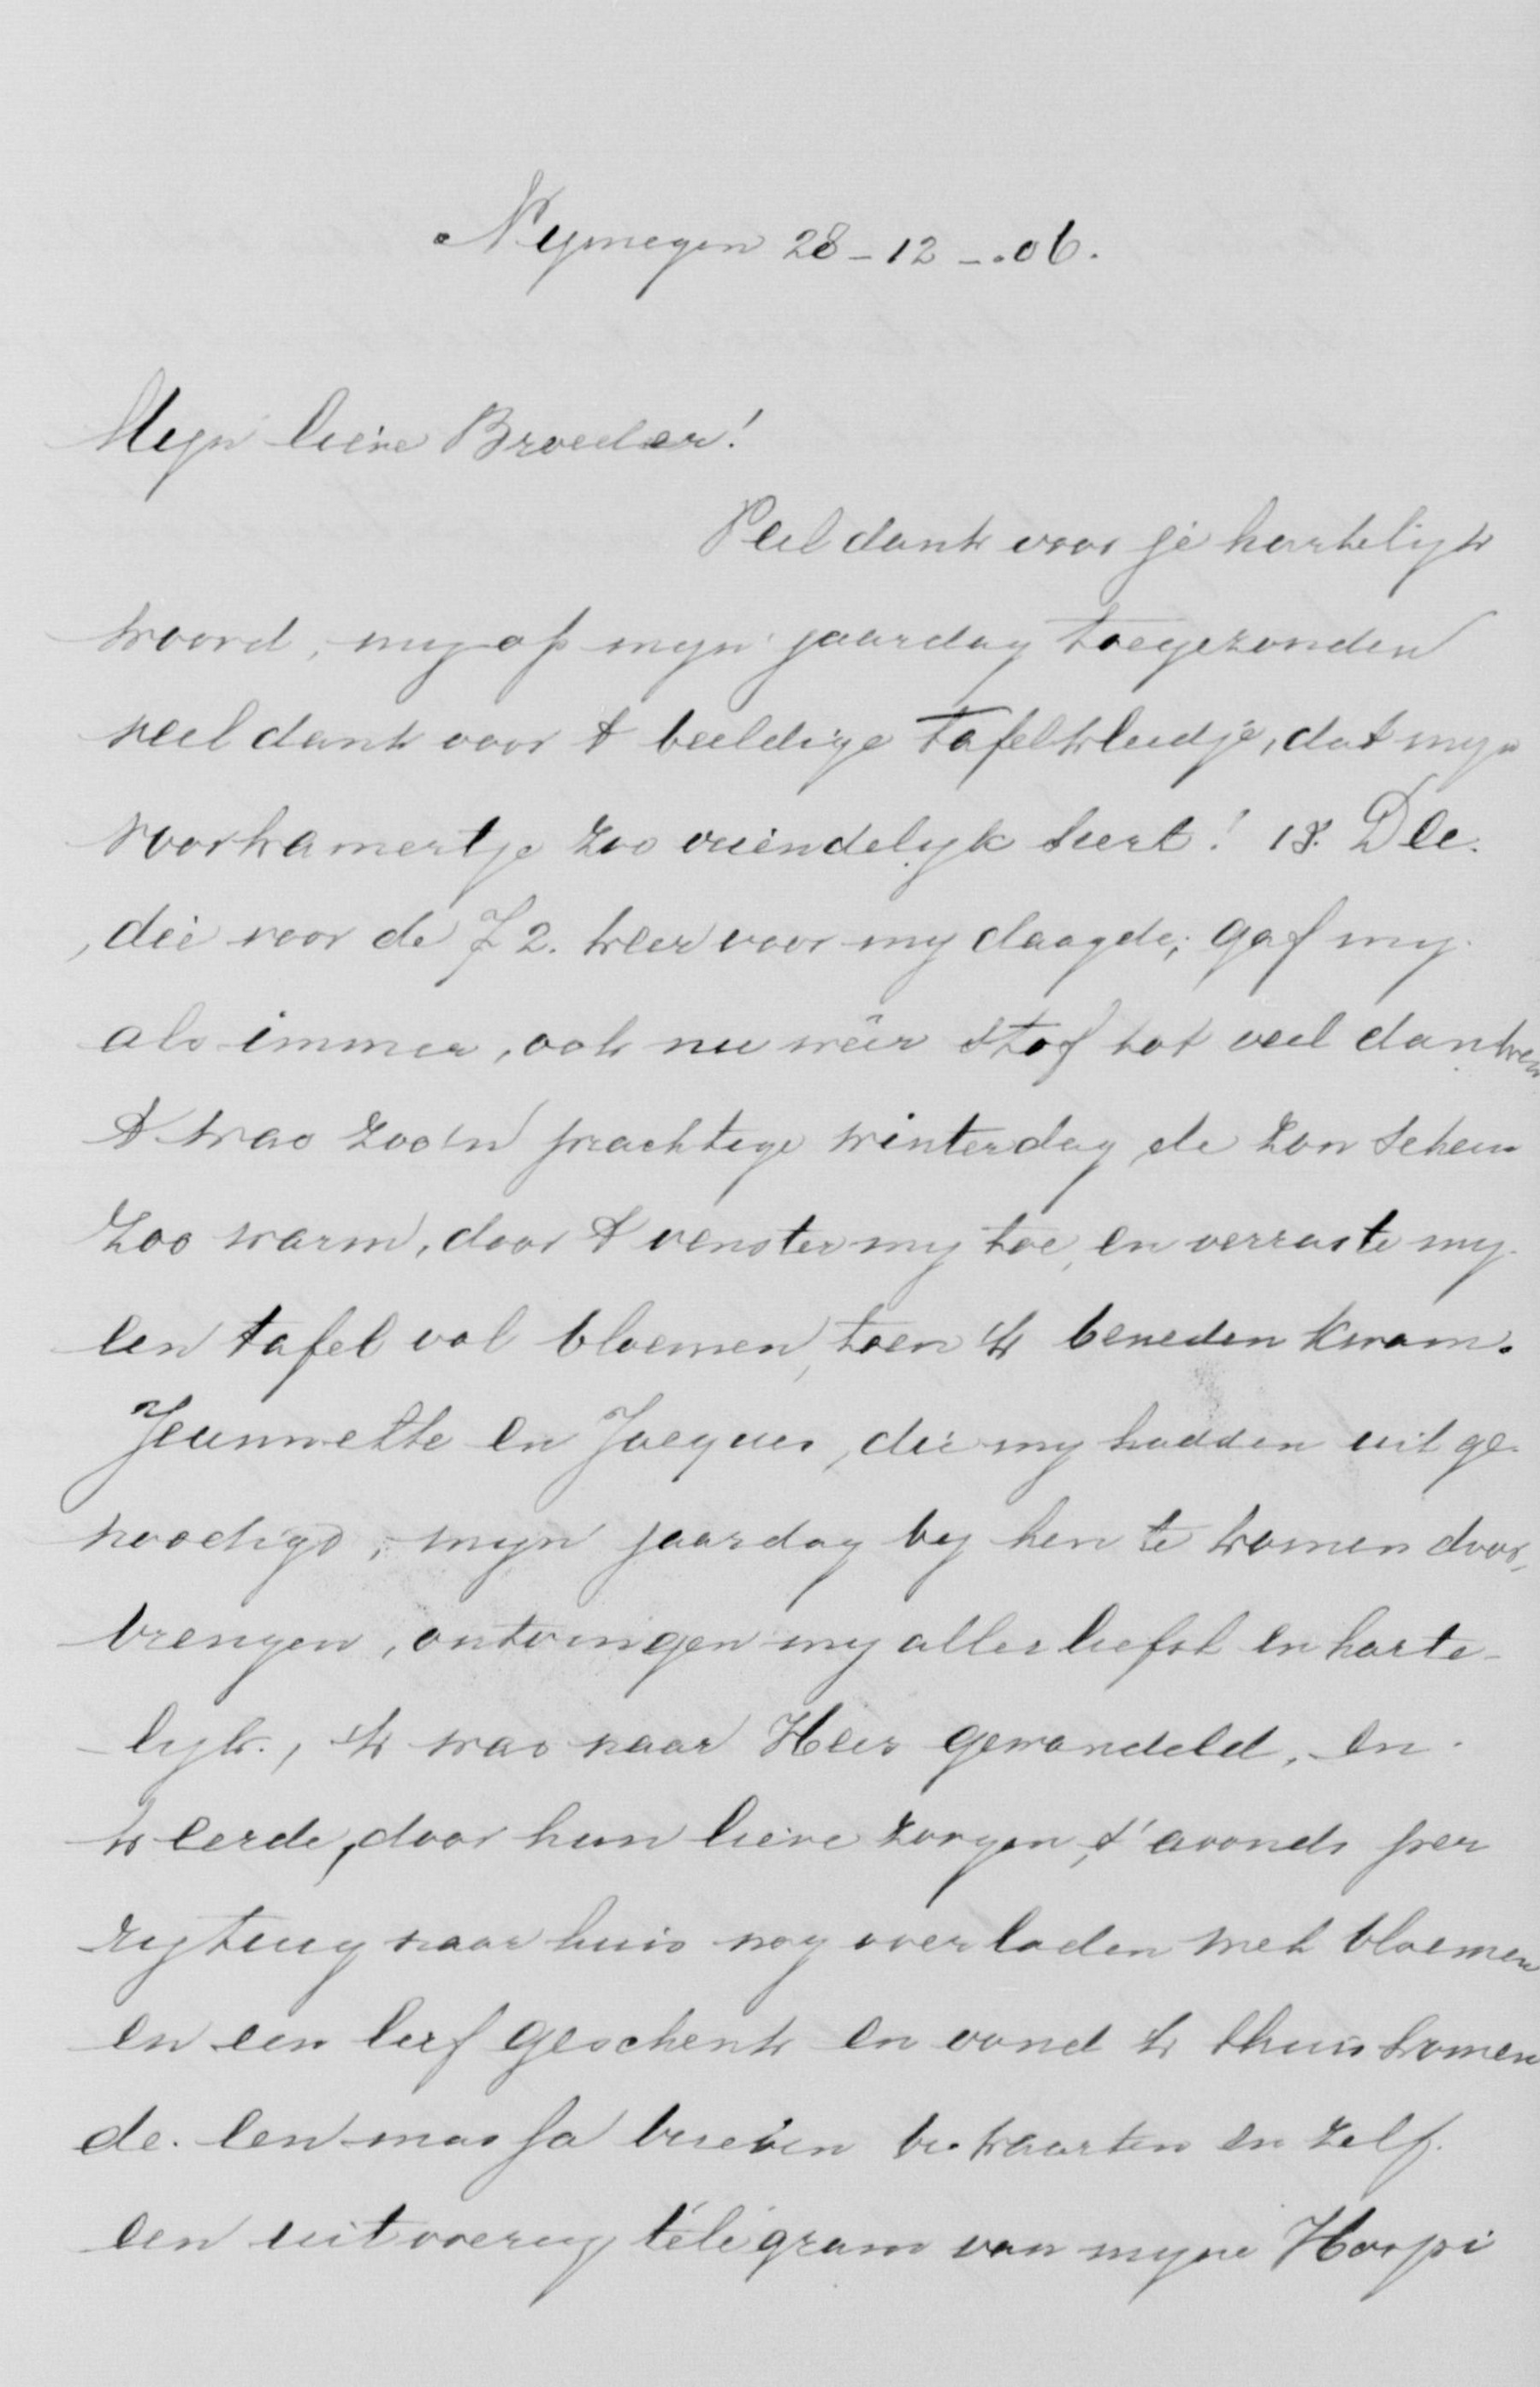 Nymegen 28-12-.06.
Myn lieve Broeder!
Veel dank voor je hartelijk
woord, my op myn jaardag toegezonden
veel dank voor 't beeldige tafelkleedje, dat myn
voorkamertje zoo vriendelyk siert! 18. Dec.
, die voor de 72. keer voor my daagde, gaf my
als immer, ook nu wêer stof tot veel danken
't was zoo'n prachtige winterdag, de zon scheen
zoo warm, door 't venster my toe, en verraste my
een tafel vol bloemen, toen ik beneden kwam.
Jeannette en Jacques, die my hadden uitge-
noodigd, myn jaardag by hen te komen door-
brengen, ontvingen my allerliefst en harte-
lyk., ik was naar Hees gewandeld, en
keerde, door hun lieve zorgen, 's avonds per
rytuig naar huis nog overladen met bloemen
en een lief geschenk en vond ik thuiskomen
de. een massa brieven br. kaarten en zelf
een uitvoerig télégram van myne